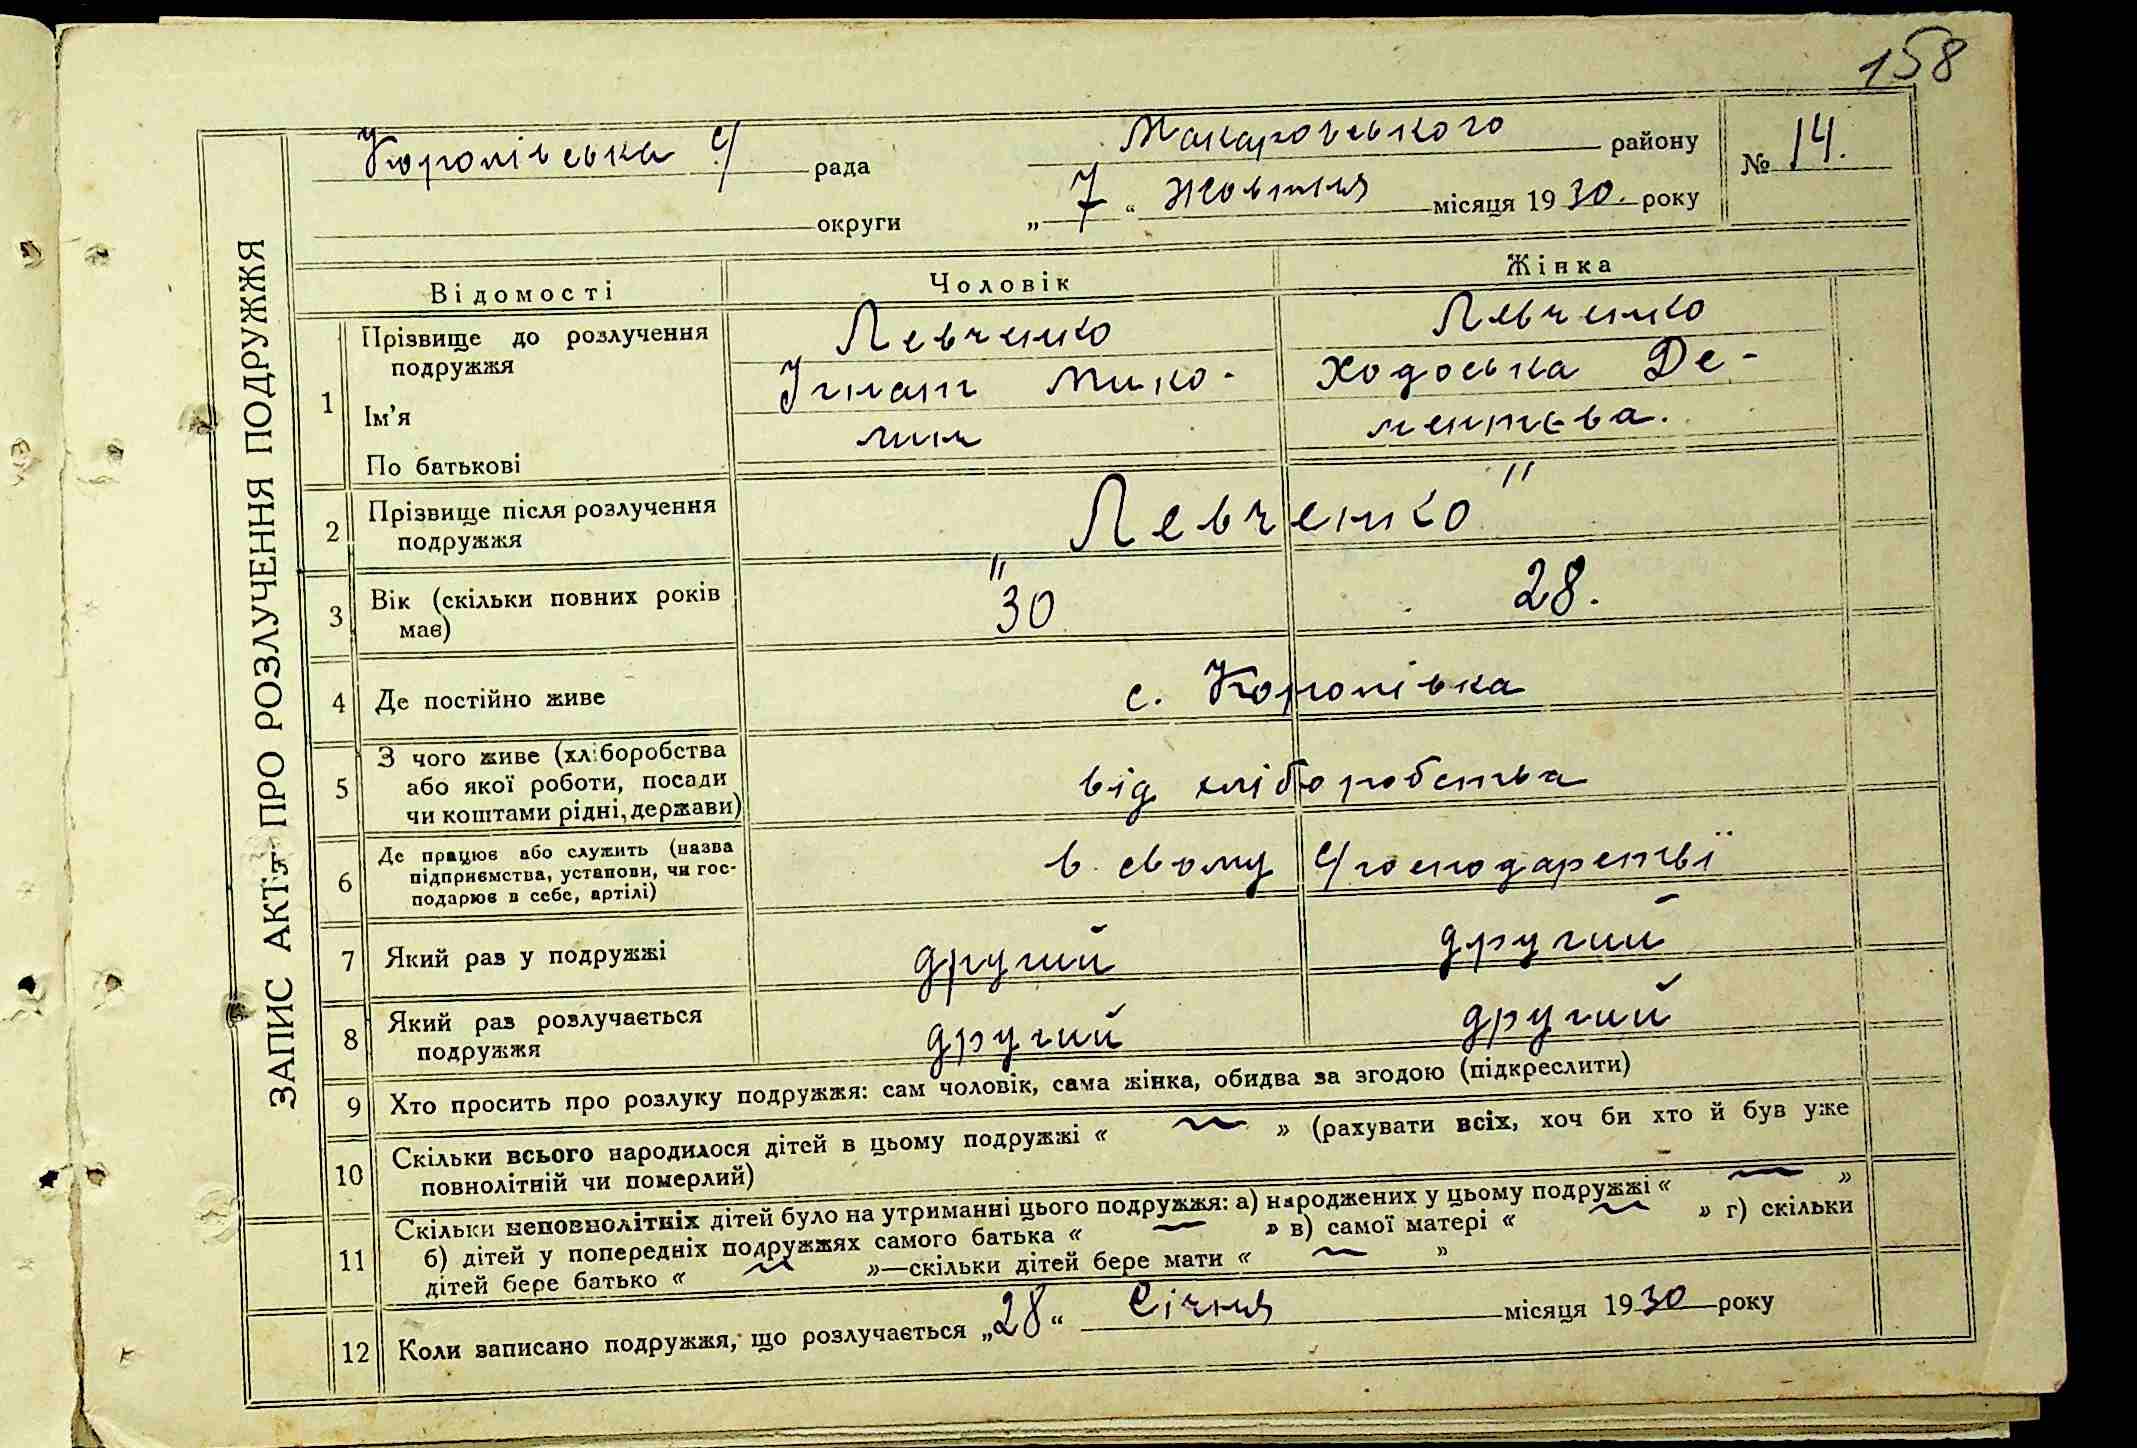 158
ЗАПИС АКТУ ПРО РОЗЛУЧЕННЯ ПОДРУЖЖЯ
Королівська с/ рада Макарівського району № 14.
округи „ 7 “ Жовтня місяця 1930. року
Відомості Чоловік Жінка
1 Прізвище до розлучення подружжя Левченко Левченко
Ім'я Ігнат Мико- Ходоська Де-
По батькові лин ментєва.
2 Прізвище після розлучення подружжя „Левченко"
3 Вік (скільки повних років має) 30 28.
4 Де постійно живе с. Королівка
5 З чого живе (хліборобства або якої роботи, посади чи коштами рідні, держави) від хліборобства
6 Де працює або служить (назва підприємства, установи, чи господарює в себе, артілі) в свому с/господарстві
7 Який раз у подружжі другий другий
8 Який раз розлучається подружжя другий другий
9 Хто просить про розлуку подружжя: сам чоловік, сама жінка, обидва за згодою (підкреслити)
10 Скільки всього народилося дітей в цьому подружжі « — » (рахувати всіх, хоч би хто й був уже
повнолітній чи померлий)
11 Скільки неповнолітніх дітей було на утриманні цього подружжя: а) народжених у цьому подружжі « — »
б) дітей у попередніх подружжях самого батька « — » в) самої матері « — » г) скільки
дітей бере батько « — »—скільки дітей бере мати « — »
12 Коли записано подружжя, що розлучається „28“ Січня місяця 1930 року